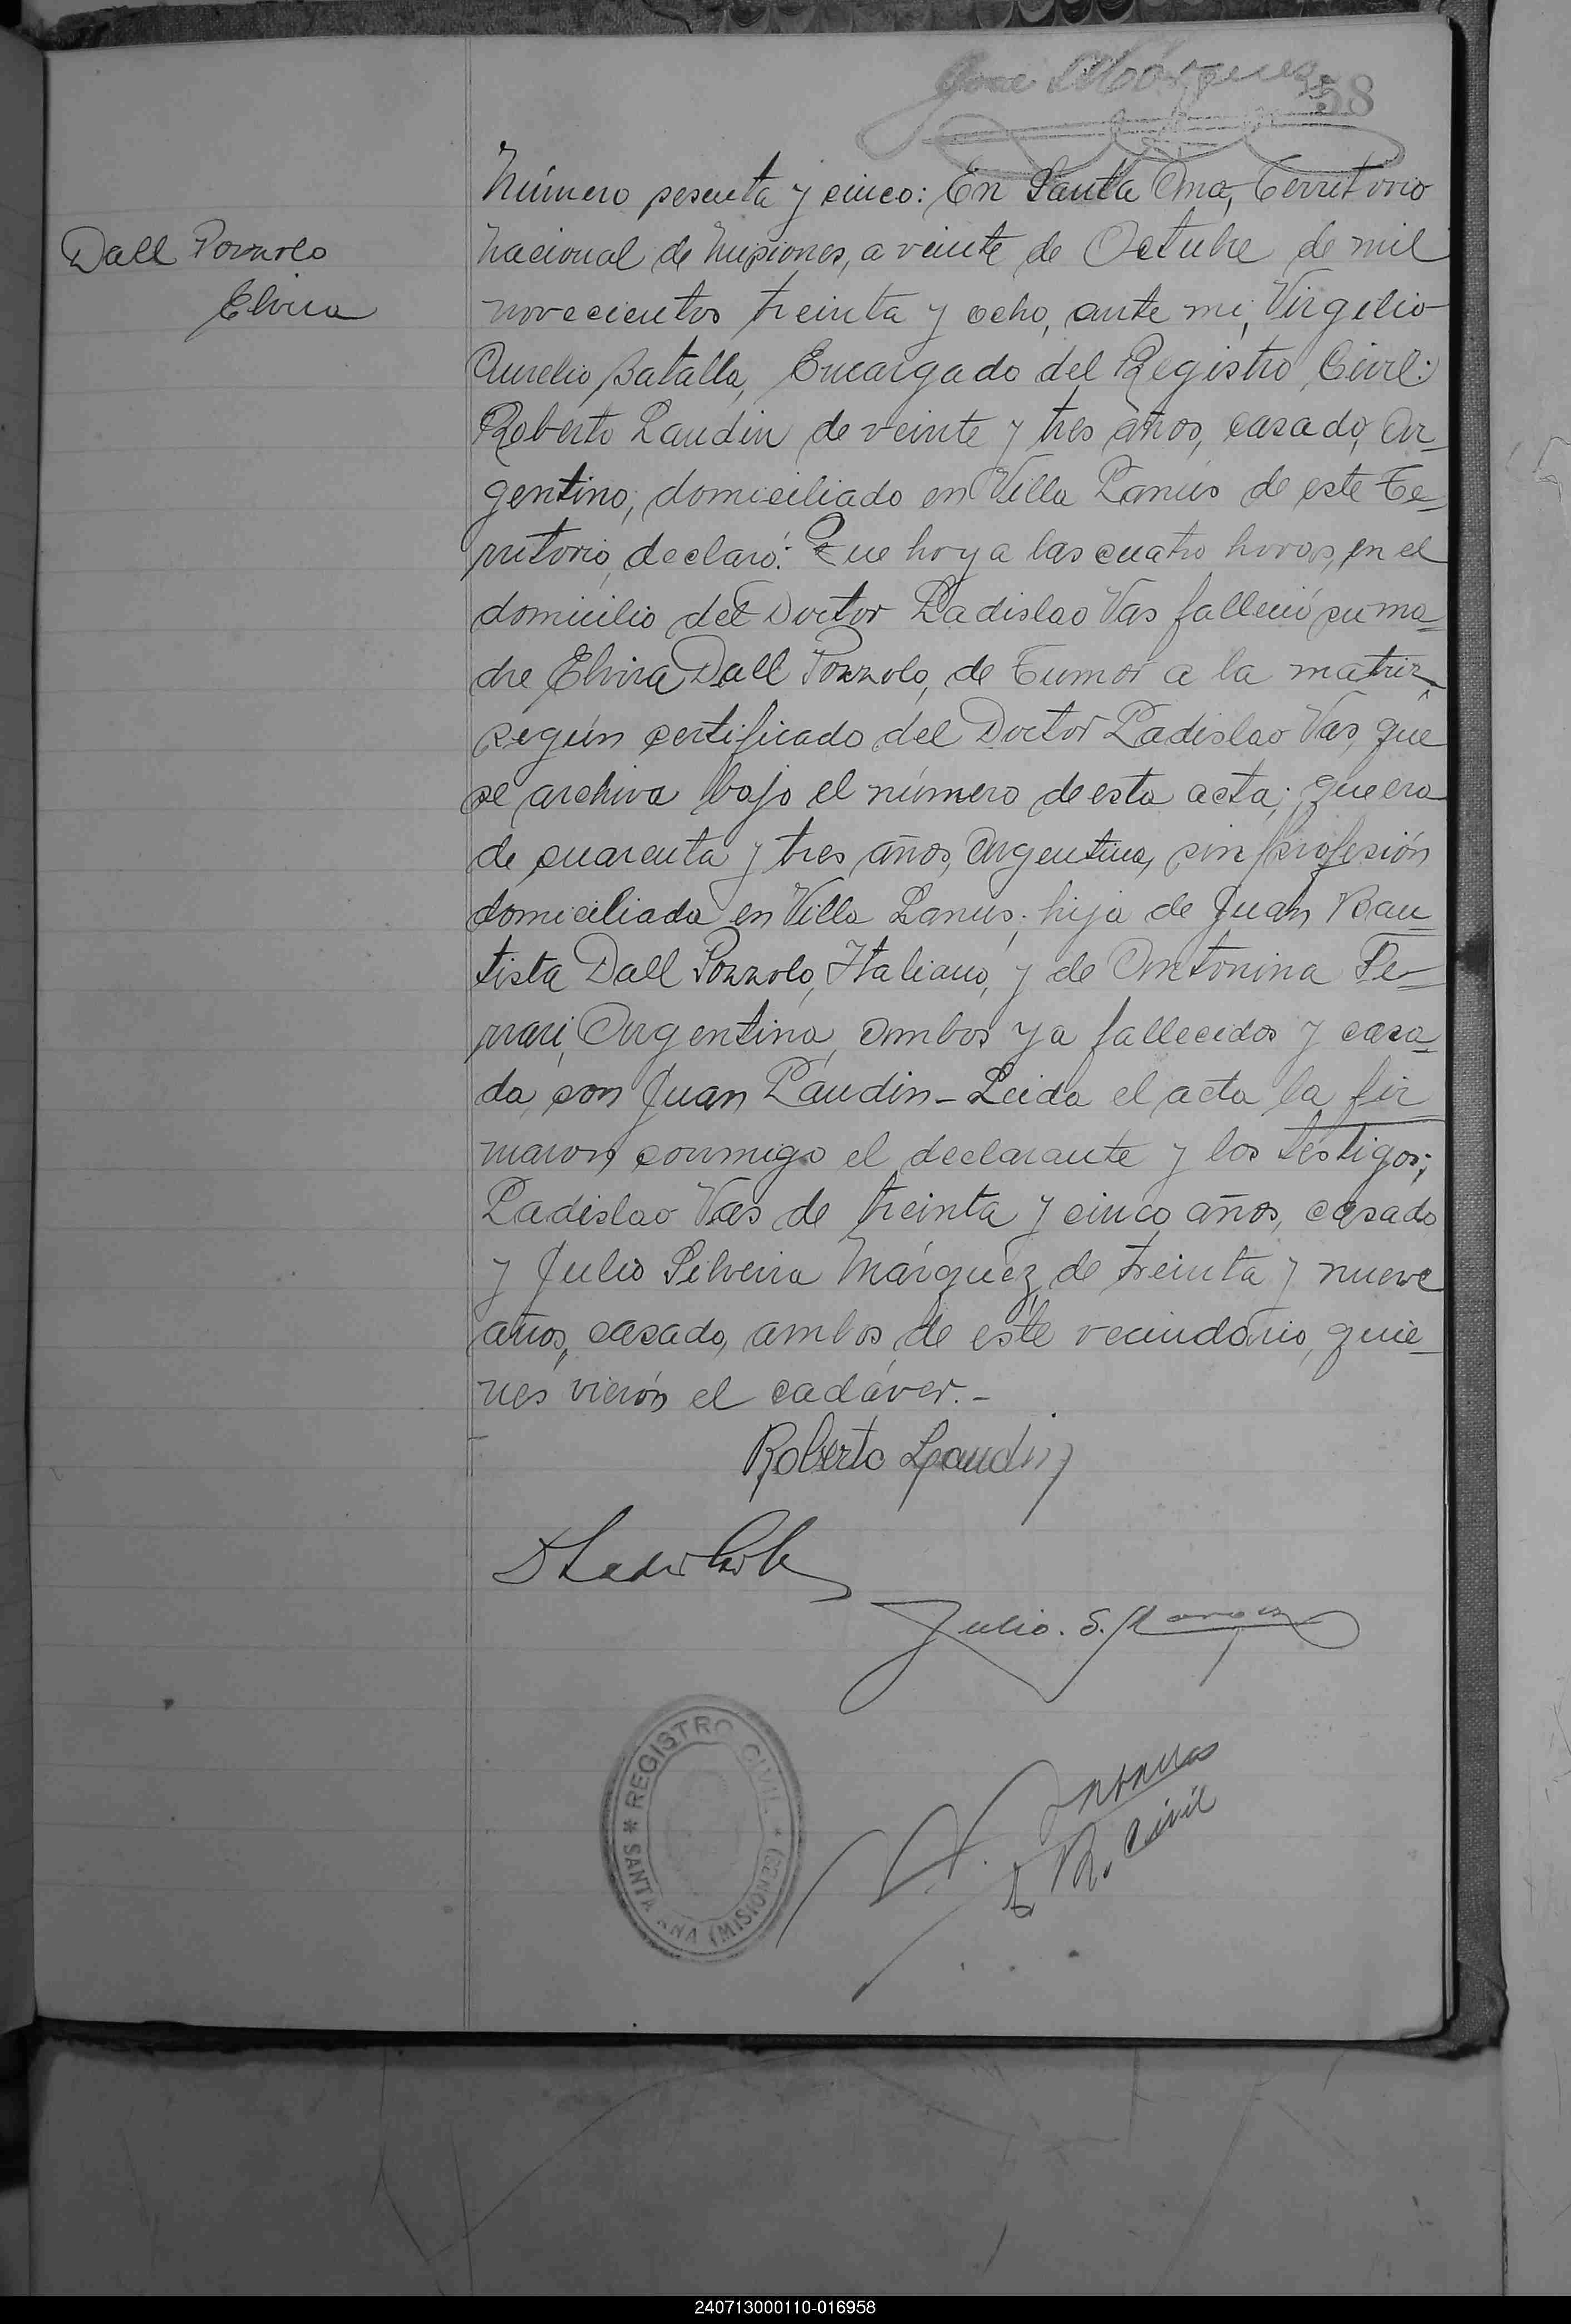 58
Número sesenta y cinco: En Santa Ana, Territorio
Dall Pozzolo
Elvira
nacional de Misiones, a veinte de Octubre de mil
novecientos treinta y ocho, ante mi, Virgilio
Aurelio Batalla, Encargado del Registro Civil:
Roberto Landin de veinte y tres años, casado, Ar-
gentino, domiciliado en Villa Lanús de este Te-
rritorio, declaró: Que hoy a las cuatro horas, en el
domicilio del Doctor Ladislao Vas falleció su ma-
dre Elvira Dall Pozzolo, de Tumor a la matriz,
según certificado del Doctor Ladislao Vas, que
se archiva bajo el número de esta acta; que era
de cuarenta y tres años, Argentina, sin profesión
domiciliada en Villa Lanús; hija de Juan Bau-
tista Dall Pozzolo, Italiano, y de Antonina Fe-
rrari, Argentina, ambos ya fallecidos y casa-
da con Juan Landin - Leida el acta la fir-
maron conmigo el declarante y los testigos;
Ladislao Vas de treinta y cinco años, casado
y Julio Silveira Márquez de treinta y nueve
años, casado, ambos de este vecindario, quie-
nes vieron el cadáver.-
Roberto Landin
Julio. S. Marquez
R. Civil
* REGISTRO CIVIL * SANTA ANA (MISIONES)
240713000110-016958